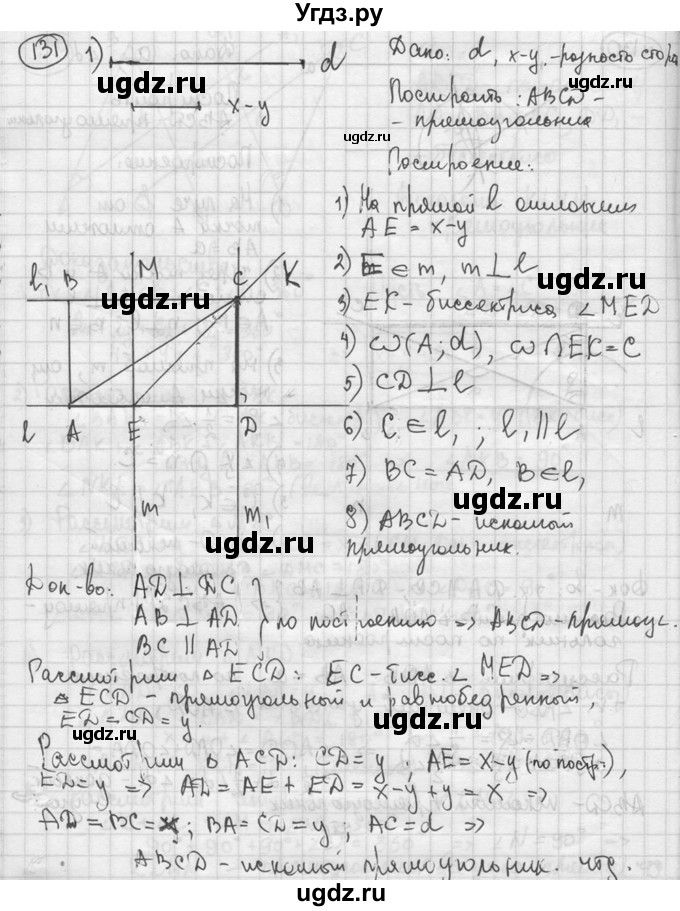 Угдз.ру
131 1) d
x-y
Дано: d, x-y - разность сторо
Построить: ABCD -
- прямоугольник
Построение:
1) На прямой l отложим
AE = x-y
2) E ∈ m, m ⊥ l
3) EK - биссектриса ∠MED
4) ω(A; d), ω ∩ EK = C
5) CD ⊥ l
6) C ∈ l₁; l₁ ∥ l
7) BC = AD, B ∈ l₁
8) ABCD - искомый
прямоугольник.
l₁ B M C K
l A E D
m m₁
Док-во: AD ⊥ DC
AB ⊥ AD
BC ∥ AD
по построению => ABCD - прямоуг.
Рассмотрим △ ECD: EC - бисс. ∠ MED =>
△ ECD - прямоугольный и равнобедренный,
ED = CD = y.
Рассмотрим △ ACD: CD = y, AE = x-y (по постр.),
ED = y => AD = AE + ED = x-y+y = x =>
AD = BC = x; BA = CD = y; AC = d =>
ABCD - искомый прямоугольник. чтд.
ugdz.ru
ugdz.ru
ugdz.ru
ugdz.ru
ugdz.ru
ugdz.ru
ugdz.ru
ugdz.ru
ugdz.ru
ugdz.ru
ugdz.ru
ugdz.ru